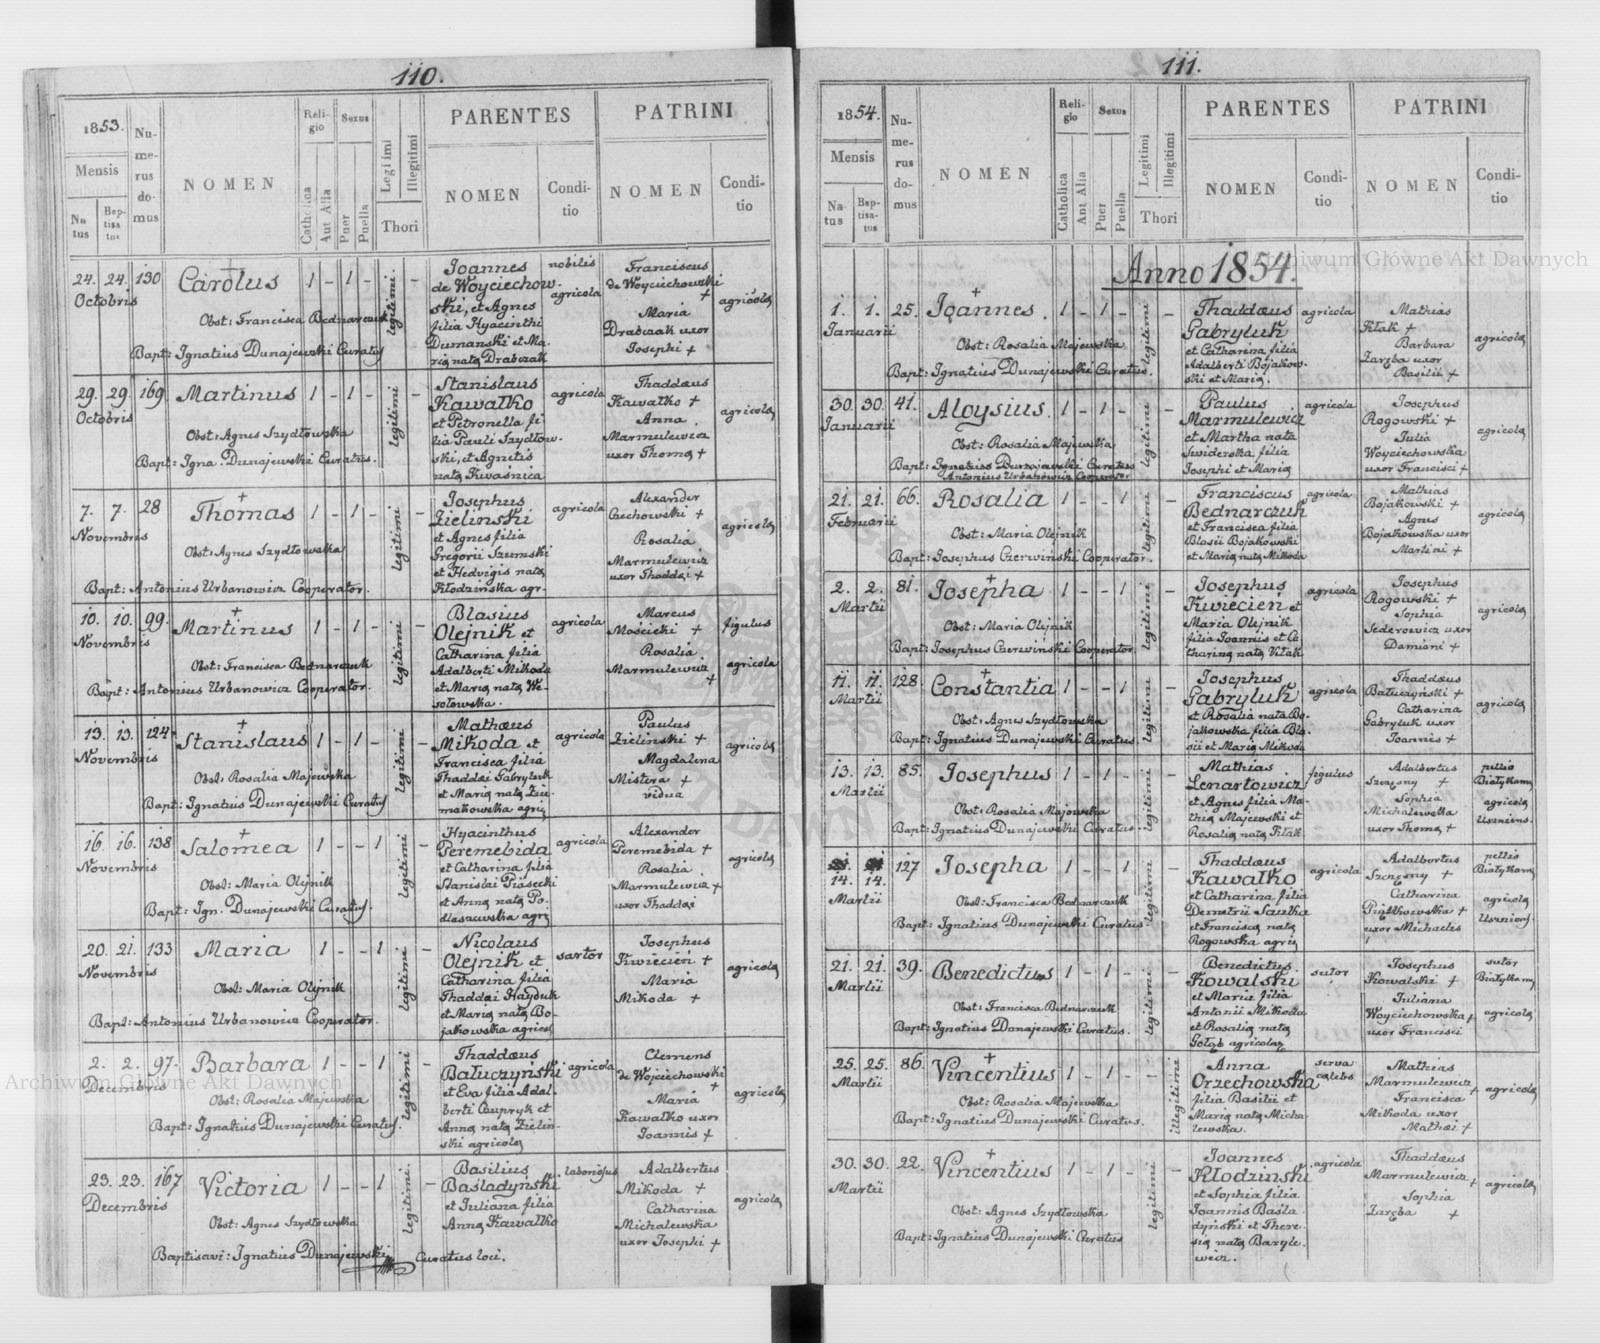 110.
1853.
Mensis
Na
tus
Bap-
tisa
tus
Nu-
me-
rus
do-
mus
NOMEN
Reli-
gio
Catholica
Aut Alia
Sexus
Puer
Puella
Legitimi
Illegitimi
Thori
PARENTES
NOMEN
Condi-
tio
PATRINI
NOMEN
Condi-
tio
24. 24. 130 Carolus 1 - 1 - legitimi. -
Octobris
Obst: Francisca Bednarczuk
Bapt: Ignatius Dunajewski Curatus
Joannes
de Woyciechow-
ski, et Agnes
filia Hyacinthi
Dumanski et Ma-
ria nata Drabczak
nobilis
agricola
Franciscus
de Woyciechowski
+
Maria
Drabczak uxor
Josephi +
agricola
29. 29. 169 Martinus 1 - 1 - legitimi -
Octobris
Obst: Agnes Szydłowska
Bapt: Igna. Dunajewski Curatus.
Stanislaus
Kawałko
et Petronella fi
lia Pauli Szydłow-
ski, et Agnetis
nata Kwaśnica
agricola
Thaddæus
Kawałko +
Anna
Marmulewicz
uxor Thoma +
agricola
7. 7. 28 Thomas 1 - 1 - legitimi -
+
Novembris
Obst: Agnes Szydłowska
Bapt: Antonius Urbanowicz Cooperator.
Josephus
Zielinski
et Agnes filia
Gregorii Szumski
et Hedvigis nata
Kłodzińska agr-
agricola
Alexander
Czechowski +
Rosalia
Marmulewicz
uxor Thaddæi +
agricola
10. 10. 99. Martinus 1 - 1 - legitimi -
+
Novembris
Obst: Francisca Bednarczuk
Bapt: Antonius Urbanowicz Cooperator.
Blasius
Olejnik et
Catharina filia
Adalberti Mikoda
et Maria nata We-
sołowska.
agricola
Marcus
Mościcki +
Rosalia
Marmulewicz
+
figulus
agricola
13. 13. 124 Stanislaus 1 - 1 - legitimi -
+
Novembris
Obst: Rosalia Majewska
Bapt: Ignatius Dunajewski Curatus
Mathæus
Mikoda et
Francisca filia
Thaddæi Gabryluk
et Maria nata Zie-
makowska agri
agricola
Paulus
Zielinski +
Magdalena
Mistera +
vidua
agricola
16. 16. 138 Salomea 1 - - 1 legitimi -
+
Novembris
Obst: Maria Olejnik
Bapt: Ign. Dunajewski Curatus.
Hyacinthus
Peremebida
et Catharina filia
Stanislai Piasecki
et Anna nata Po-
dlaszewska agri
agricola
Alexander
Peremebida +
Rosalia
Marmulewicz +
uxor Thaddæi
agricola
20. 21. 133 Maria 1 - - 1 legitimi -
Novembris
Obst: Maria Olejnik
Bapt: Antonius Urbanowicz Cooperator.
Nicolaus
Olejnik et
Catharina filia
Thaddæi Hayduk
et Maria nata Bo-
jakowska agricol
sartor
Josephus
Kwiecień +
Maria
Mikoda +
agricola
2. 2. 97. Barbara 1 - - 1 legitimi -
Decembris
Obst: Rosalia Majewska
Bapt: Ignatius Dunajewski Curatus.
Thaddæus
Bałuczyński
et Eva filia Adal-
berti Cupryk et
Anna nata Zielin-
ski agricola
agricola
Clemens
de Wojciechowski
+
Maria
Kawałko uxor
Joannis +
agricola
23. 23. 167 Victoria 1 - - 1 legitimi. -
Decembris
Obst: Agnes Szydłowska
Baptisavi: Ignatius Dunajewski Curatus loci.
Basilius
Basladyński
et Juliana filia
Anna Kawałko
laboriosus
Adalbertus
Mikoda +
Catharina
Michalewska
uxor Josephi +
agricola
111.
1854.
Mensis
Na-
tus
Bap-
tisa-
tus
Nu-
me-
rus
do-
mus
NOMEN
Reli-
gio
Catholica
Aut Alia
Sexus
Puer
Puella
Legitimi
Illegitimi
Thori
PARENTES
NOMEN
Condi-
tio
PATRINI
NOMEN
Condi-
tio
Archiwum Główne Akt Dawnych
Anno 1854.
1. 1. 25. Joannes. 1 - 1 - legitimi -
+
Januarii
Obst: Rosalia Majewska
Bapt: Ignatius Dunajewski Curatus.
Thaddæus
Gabryluk
et Catharina filia
Adalberti Bojakow-
ski et Maria.
agricola
Mathias
Kłak +
Barbara
Zaręba uxor
Basilii +
agricola
30. 30. 41. Aloysius. 1 - 1 - legitimi -
Januarii
Obst: Rosalia Majewska
Bapt: Ignatius Dunajewski Curatus
Antonius Urbanowicz Cooperator
Paulus
Marmulewicz
et Martha nata
Swiderska filia
Josephi et Maria
agricola
Josephus
Rogowski +
Julia
Woyciechowska
uxor Francisci +
agricola
21. 21. 66. Rosalia 1 - - 1 legitimi -
Februarii
Obst: Maria Olejnik
Bapt: Josephus Czerwiński Cooperator.
Franciscus
Bednarczuk
et Francisca filia
Blasii Bojakowski
et Maria nata Mikoda
agricola
Mathias
Bojakowski +
Agnes
Bojakowska uxor
Martini +
agricola
2. 2. 81. Josepha 1 - - 1 legitimi -
+
Martii
Obst: Maria Olejnik
Bapt: Josephus Czerwiński Cooperator.
Josephus
Kwiecień et
Maria Olejnik
filia Joannis et Ca
tharina nata Kłak
agricola
Josephus
Rogowski +
Sophia
Sederowicz uxor
Damiani +
agricola
11. 11. 128. Constantia 1 - - 1 legitimi -
+
Martii
Obst: Agnes Szydłowska
Bapt: Ignatius Dunajewski Curatus.
Josephus
Gabryluk
et Rosalia nata Bo-
jakowska filia Bla-
sii et Maria Mikoda
agricola
Thaddæus
Bałuczyński +
Catharina
Gabryluk uxor
Joannis +
agricola
13. 13. 85. Josephus 1 - 1 - legitimi -
Martii
Obst: Rosalia Majewska
Bapt: Ignatius Dunajewski Curatus.
Mathias
Lenartowicz
et Agnes filia Ma-
thia Majewski et
Rosalia nata Kłak
figulus
Adalbertus
Szczęsny +
Sophia
Michalewska
uxor Thoma +
pellio
Białykam
agricola
Uszniens.
14. 14. 127 Josepha 1 - - 1 legitimi -
Martii
Obst: Francisca Bednarczuk
Bapt: Ignatius Dunajewski Curatus
Thaddæus
Kawałko
et Catharina filia
Demetrii Sautka
et Francisca nata
Rogowska agri
agricola
Adalbertus
Szczęsny +
Catharina
Piątkowska +
uxor Michaelis
pellio
Białykam
agricola
Uszniens
21. 21. 39. Benedictus 1 - 1 - legitimi -
Martii
Obst: Francisca Bednarczuk
Bapt: Ignatius Dunajewski Curatus.
Benedictus
Kowalski
et Maria filia
Antonii Mikoda
et Rosalia nata
Gołąb agricola
sutor
Josephus
Kowalski +
Juliana
Woyciechowska +
uxor Francisci
sutor
Białykam
agricola
25. 25. 86. Vincentius 1 - 1 - - illegitimi
+
Martii
Obst: Rosalia Majewska
Bapt: Ignatius Dunajewski Curatus.
Anna
Orzechowska
filia Basilii et
Maria nata Micha
lewska.
serva
cælebs
Mathias
Marmulewicz +
Francisca
Mikoda uxor
Mathæi +
agricola
30. 30. 22. Vincentius 1 - 1 - legitimi -
+
Martii
Obst: Agnes Szydłowska
Bapt: Ignatius Dunajewski Curatus
Joannes
Kłodzinski
et Sophia filia
Joannis Basla-
dyński et There-
sia nata Baryle-
wicz.
agricola
Thaddæus
Marmulewicz +
Sophia
Zaręba +
agricola
Archiwum Główne Akt Dawnych